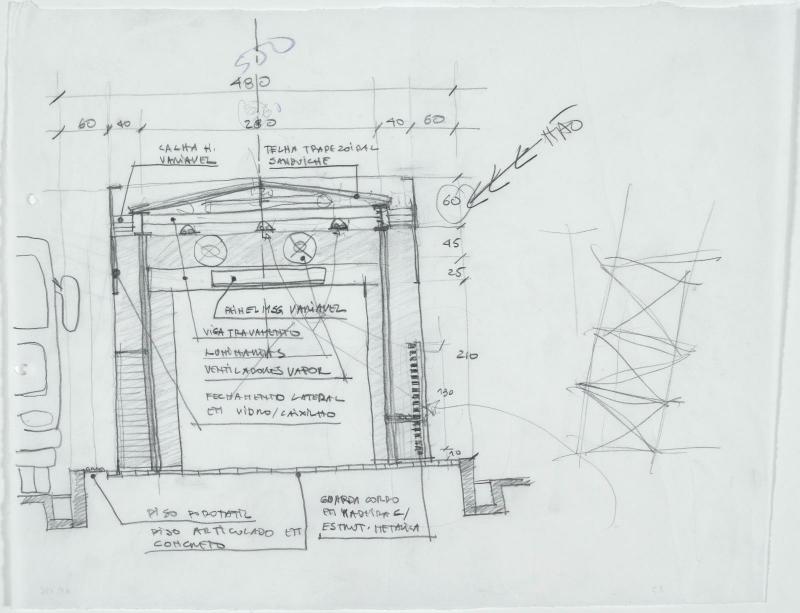 500
480
60 40 280 40 60
CALHA H.
VARIAVEL
TELHA TRAPEZOIDAL
SANDUICHE
NÃO
60
45
25
PAINEL MSG VARIAVEL
VIGA TRAVAMENTO
LUMINARIAS
VENTILADORES VAPOR
FECHAMENTO LATERAL
EM VIDRO/CAIXILHO
210
130
PISO PODOTATIL
PISO ARTICULADO EM
CONCRETO
GUARDA CORPO
EM MADEIRA C/
ESTRUT. METALICA